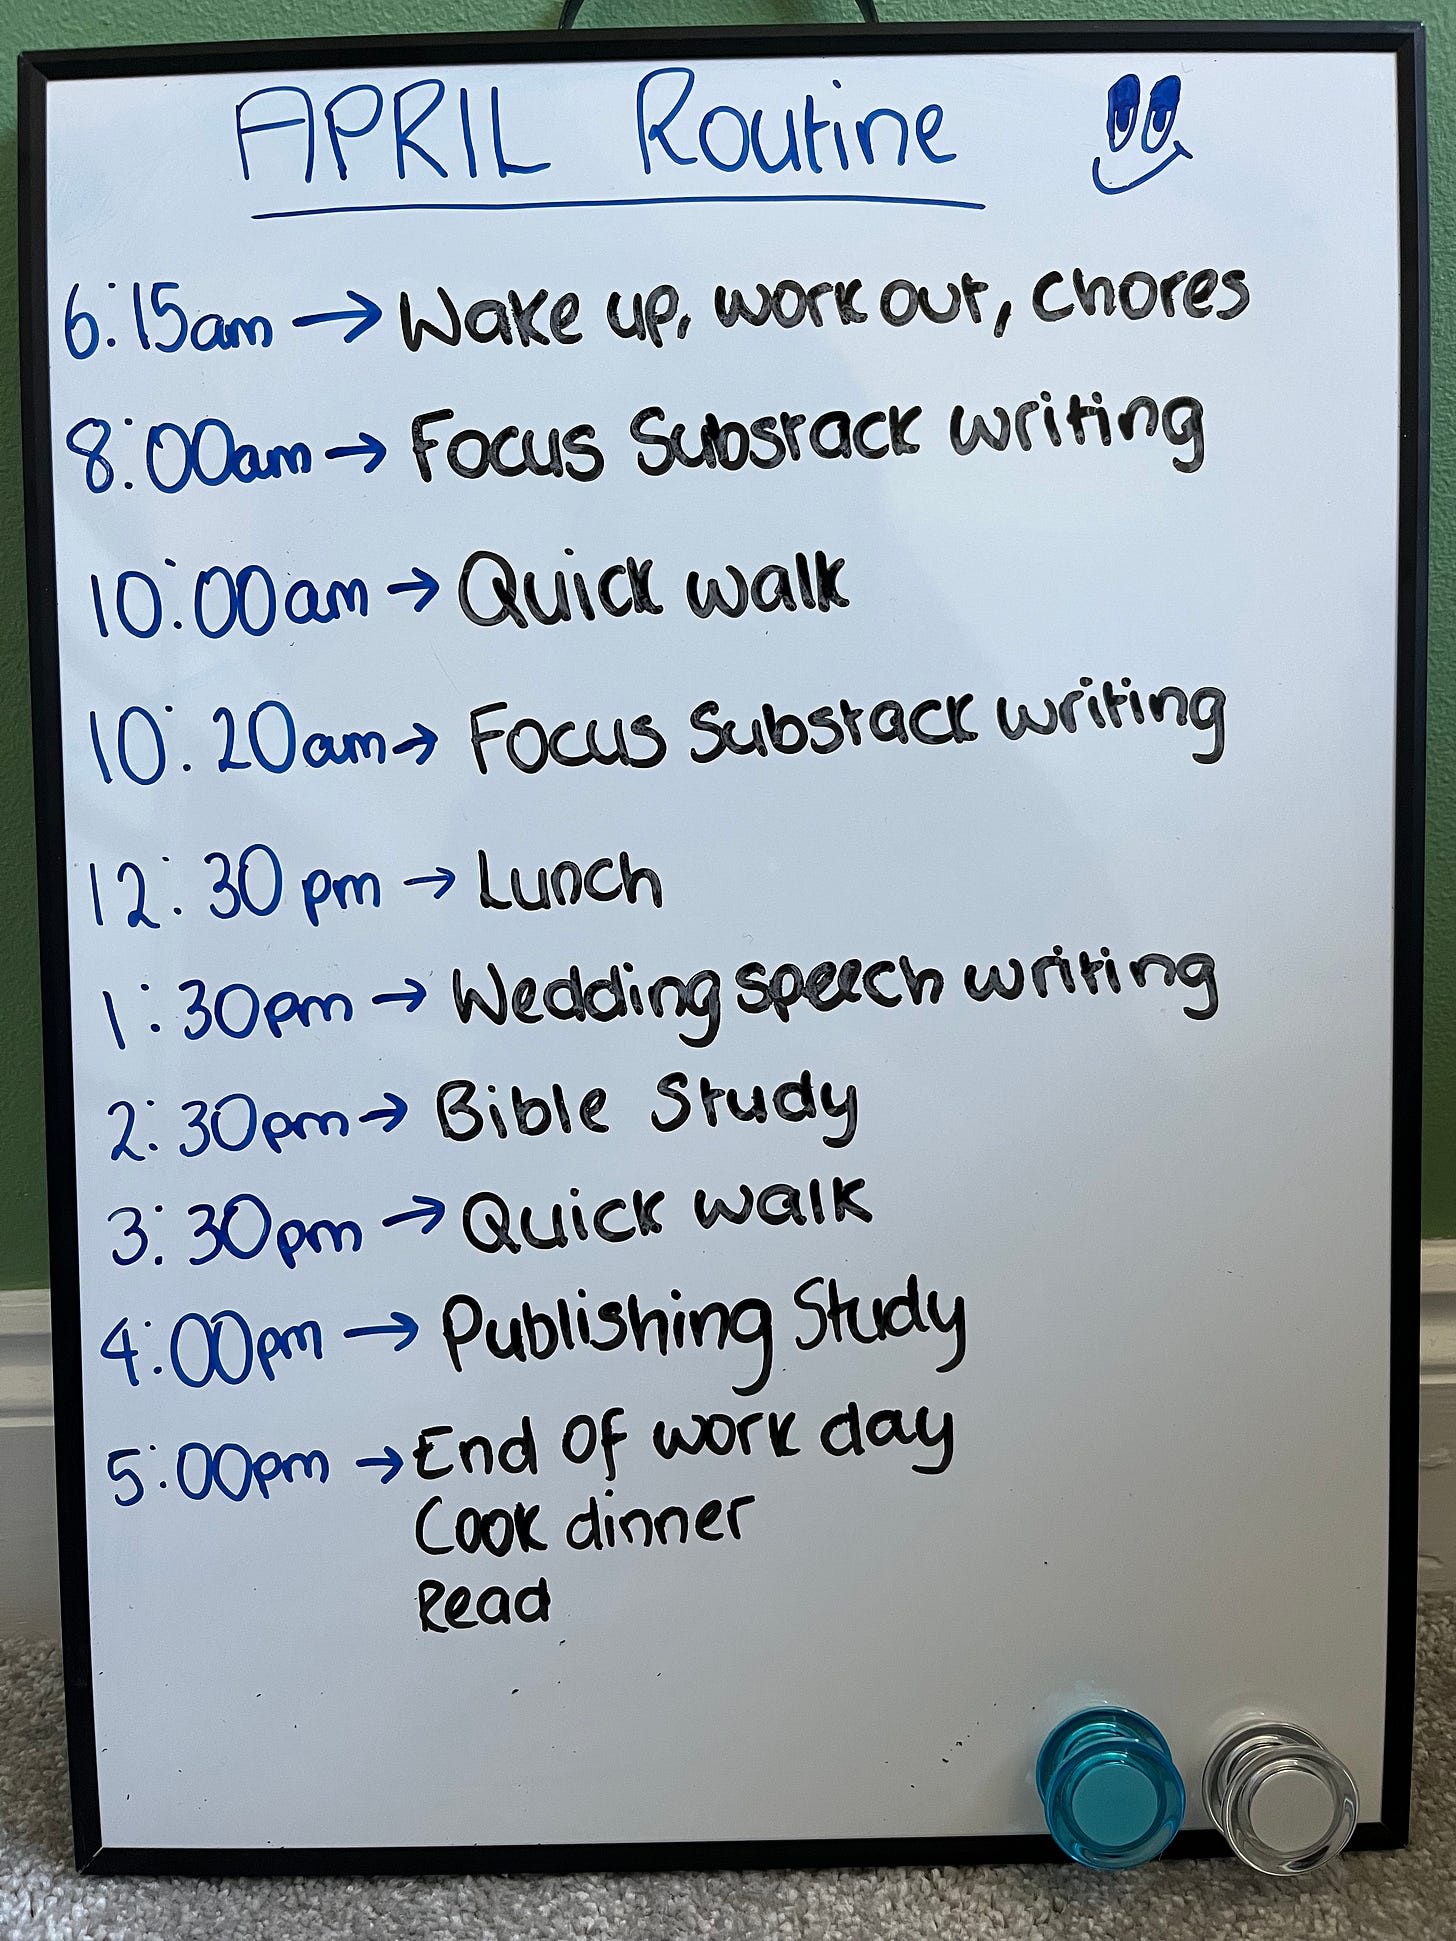 APRIL Routine
6:15am → Wake up, work out, chores
8:00am → Focus Substack writing
10:00am → Quick walk
10:20am → Focus Substack writing
12:30pm → Lunch
1:30pm → Wedding speech writing
2:30pm → Bible Study
3:30pm → Quick walk
4:00pm → Publishing Study
5:00pm → End of work day
Cook dinner
Read